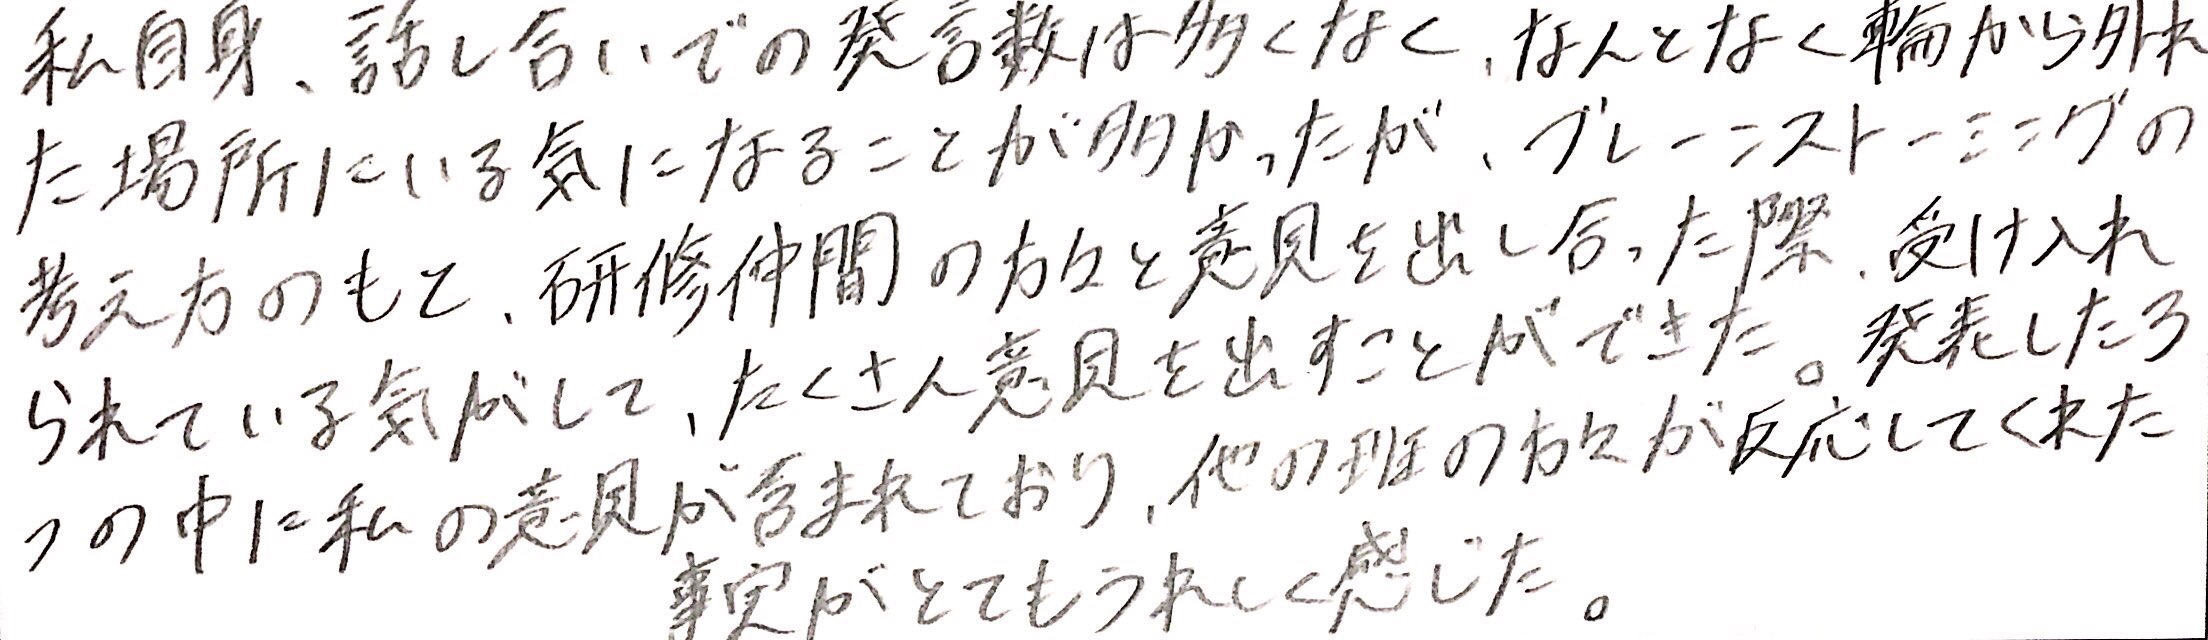 私自身、話し合いでの発言数は多くなく、なんとなく輪から外れ
た場所にいる気になることが多かったが、ブレーンストーミングの
考え方のもと、研修仲間の方々と意見を出し合った際、受け入れ
られている気がして、たくさん意見を出すことができた。発表した3
つの中に私の意見が含まれており、他の班の方々が反応してくれた
事実がとてもうれしく感じた。